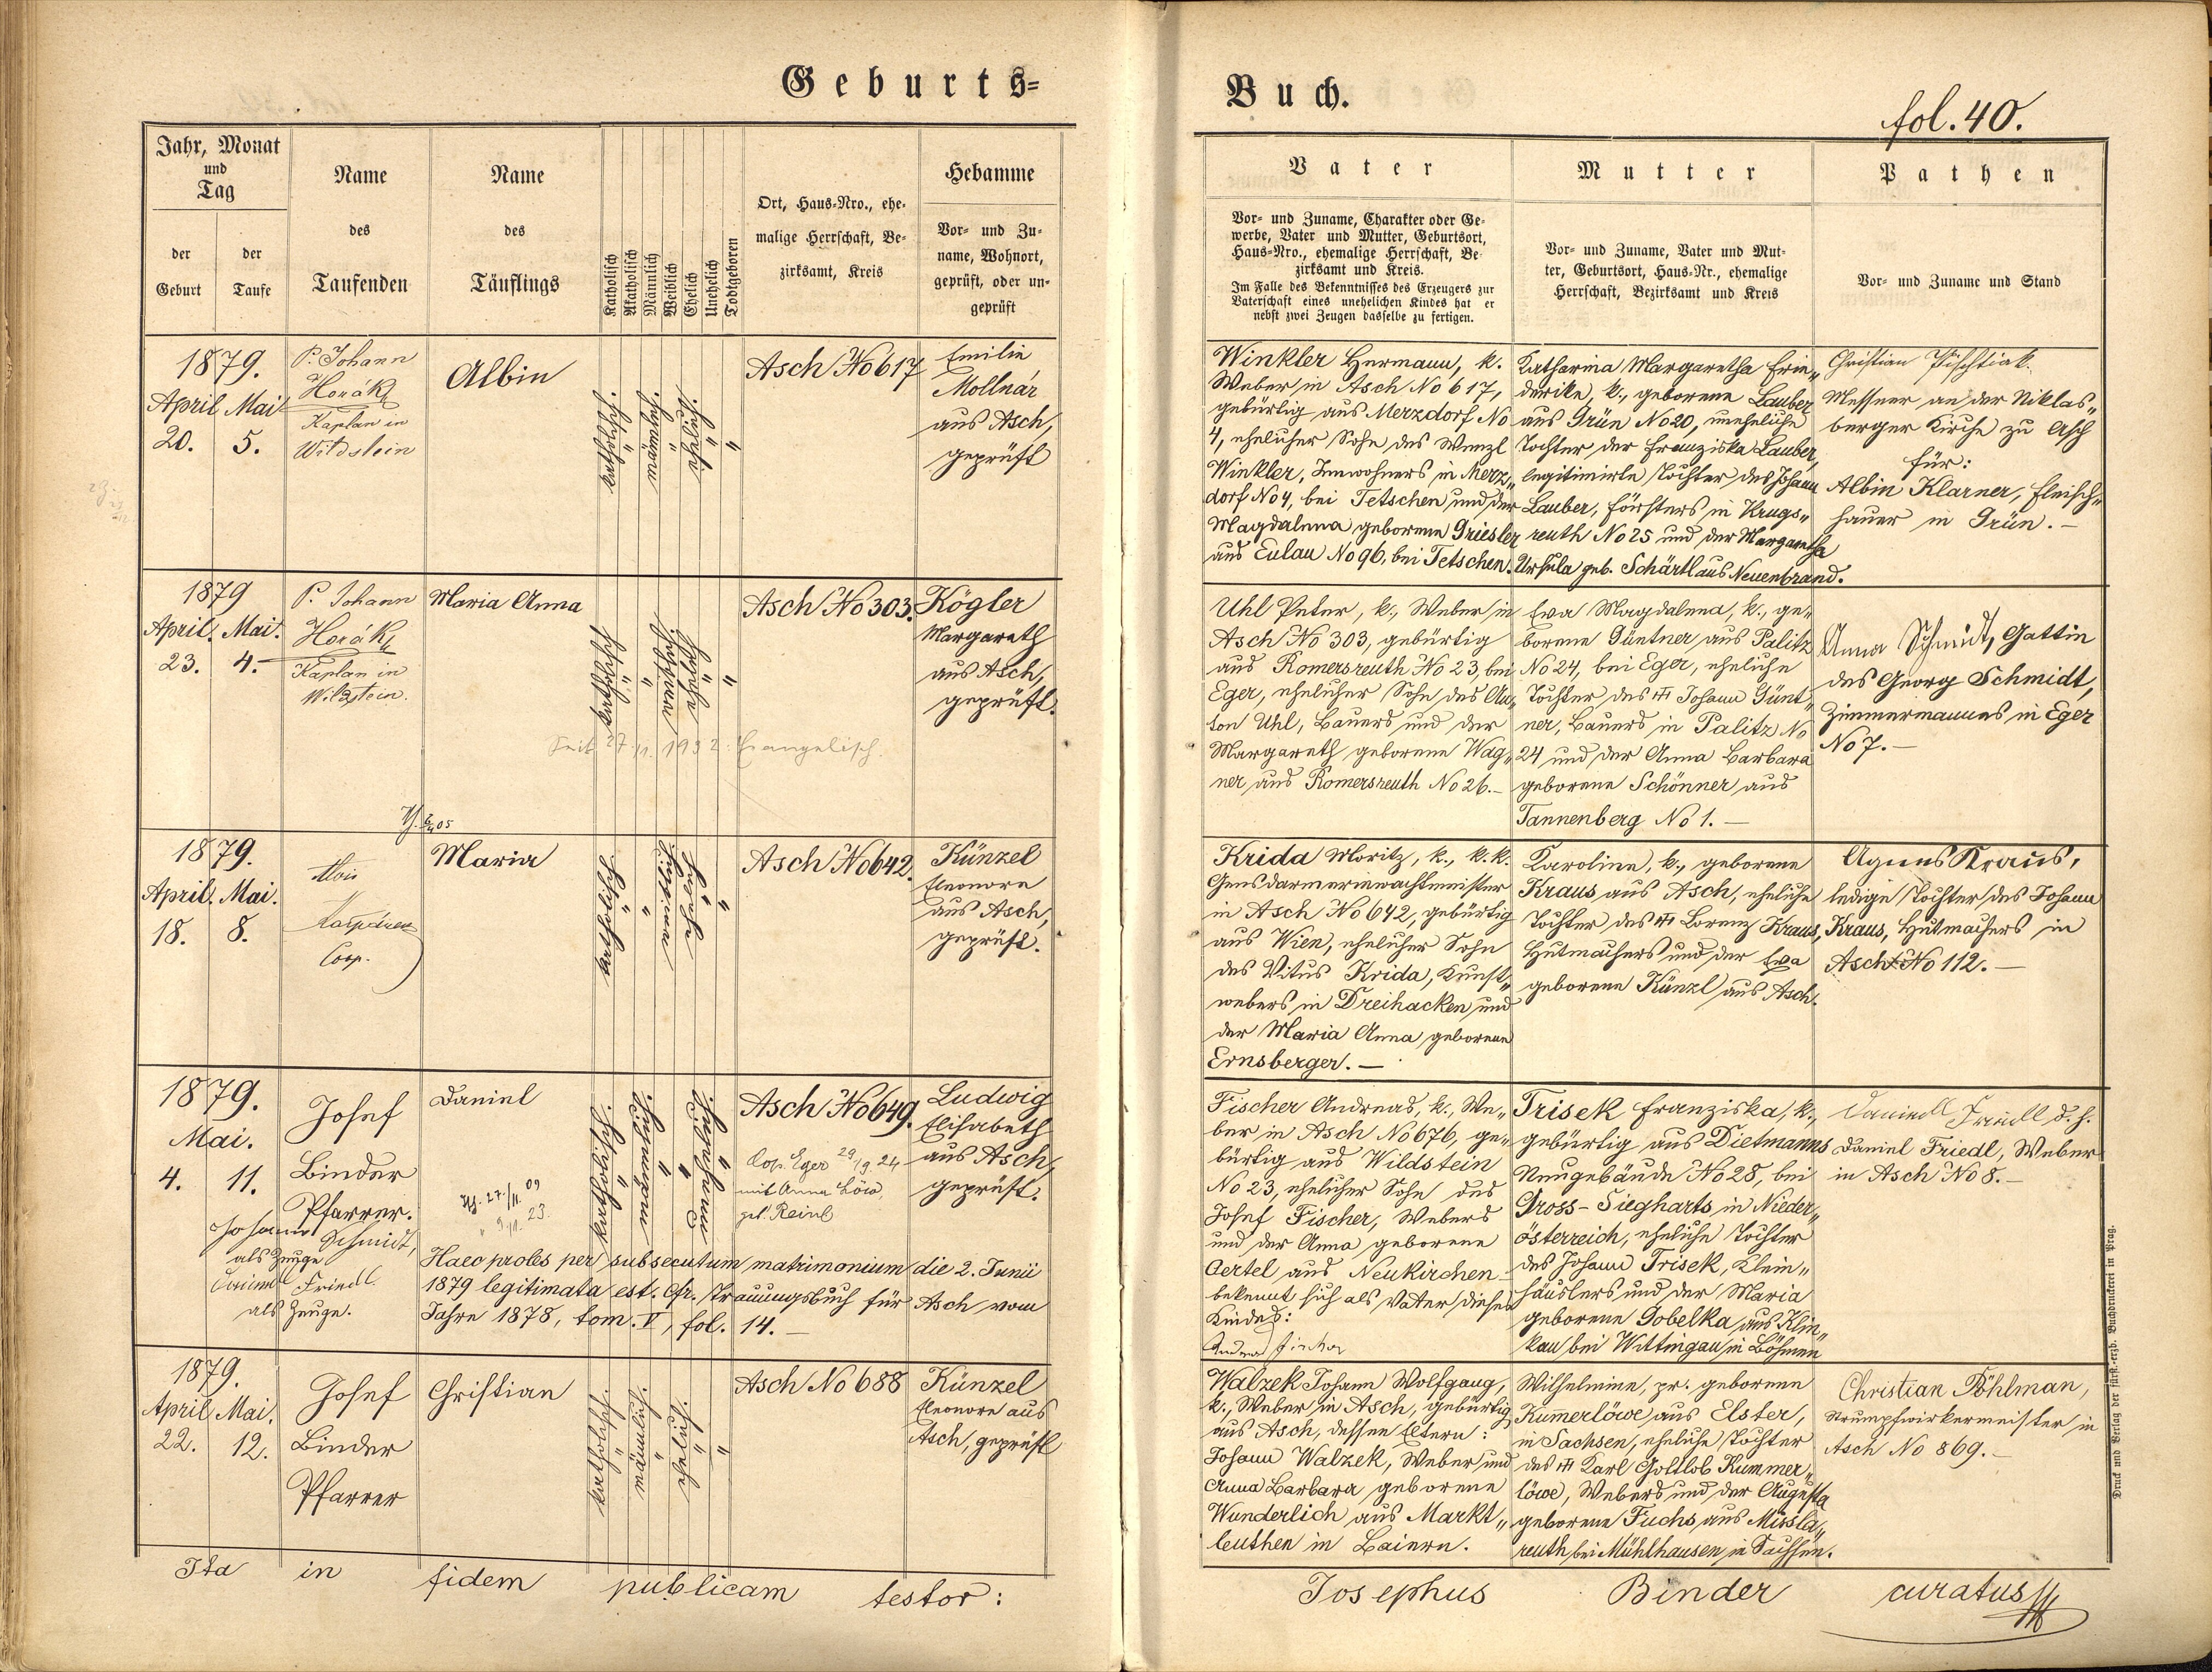 Geburts=
Jahr, Monat
und
Tag
der
Geburt
der
Taufe
Name
des
Taufenden
Name
des
Täuflings
Katholisch
Akatholisch
Männlich
Weiblich
Ehelich
Unehelich
Todtgeboren
Ort, Haus=Nro., ehe=
malige Herrschaft, Be=
zirksamt, Kreis
Hebamme
Vor= und Zu=
name, Wohnort,
geprüft, oder un=
geprüft
1879.
April Mai
20. 5.
P. Johann
Horák
Kaplan in
Wildstein
Albin
katholisch.
"
männlich.
"
ehelich.
"
"
Asch No 617
Emilie
Mollnár
aus Asch,
geprüft
1879
April. Mai.
23. 4.
P. Johann
Horák
Kaplan in
Wildstein.
Maria Anna
katholisch
"
"
weiblich.
ehelich
"
"
Asch No 303.
Kögler
Margareth
aus Asch,
geprüft.
Seit 27. 11. 1932. Evangelisch.
1879.
April. Mai.
18. 8.
Alois
Coop.
Maria
katholisch
"
"
weiblich
ehelich
"
"
Asch No 642.
Künzel
Eleonore
aus Asch,
geprüft.
1879.
Mai.
4. 11.
Josef
Binder
Pfarrer.
Johann Schmidt,
als Zeuge
Daniel Friedl
als Zeuge.
Daniel
27./11. 09
" 9./11. 23.
katholisch.
"
männlich.
"
"
unehelich.
"
Asch No 649.
Cop. Eger 29/9. 24
mit Anna Löw,
geb. Reinl
Ludwig
Elisabeth
aus Asch,
geprüft.
Haec proles per subsecutum matrimonium die 2. Junii
1879 legitimata est. Cfr. Trauungsbuch für Asch vom
Jahre 1878, tom. V, fol. 14. —
1879.
April Mai.
22. 12.
Josef
Binder
Pfarrer
Christian
katholisch.
"
männlich.
"
ehelich.
"
"
Asch No 688
Künzel
Eleonore aus
Asch, geprüft
Ita in fidem publicam testor:
Buch.
fol. 40.
Vater
Vor= und Zuname, Charakter oder Ge=
werbe, Vater und Mutter, Geburtsort,
Haus=Nro., ehemalige Herrschaft, Be=
zirksamt und Kreis.
Im Falle des Bekenntnisses des Erzeugers zur
Vaterschaft eines unehelichen Kindes hat er
nebst zwei Zeugen dasselbe zu fertigen.
Mutter
Vor= und Zuname, Vater und Mut=
ter, Geburtsort, Haus=Nr., ehemalige
Herrschaft, Bezirksamt und Kreis
Pathen
Vor= und Zuname und Stand
Winkler Hermann, k.
Weber in Asch No 617,
gebürtig aus Merzdorf No
4, ehelicher Sohn des Wenzl
Winkler, Inwohners in Merz„
dorf No 4, bei Tetschen und der
Magdalena geborene Griesler
aus Eulau No 96, bei Tetschen.
Katharina Margaretha Frie„
derike, k., geborene Lauber
aus Grün No 20, uneheliche
Tochter der Franziska Lauber,
legitimirte Tochter des Johann
Lauber, Försters in Krugs„
reuth No 25 und der Margaretha
Ursula geb. Schärtl aus Neuenbrand.
Christian
Messner an der Niklas„
berger Kirche zu Asch
für:
Albin Klarner, Fleisch„
hauer in Grün. —
Uhl Peter, k., Weber in
Asch No 303, gebürtig
aus Romersreuth No 23, bei
Eger, ehelicher Sohn des An„
ton Uhl, Bauers und der
Margareth geborene Wag„
ner aus Romersreuth No 26. —
Eva Magdalena, k., ge„
borene Güntner aus Palitz
No 24, bei Eger, eheliche
Tochter des ††† Johann Günt„
ner, Bauers in Palitz No
24 und der Anna Barbara
geborene Schönner aus
Tannenberg No 1. —
Anna Schmidt, Gattin
des Georg Schmidt,
Zimmermannes in Eger
No 7. —
Krida Moritz, k., k. k.
Gensdarmeriewachtmeister
in Asch No 642, gebürtig
aus Wien, ehelicher Sohn
des Vitus Krida, Kunst„
webers in Dreihacken und
der Maria Anna geborene
Ernsberger. —
Karoline, k., geborene
Kraus aus Asch, eheliche
Tochter des ††† Lorenz Kraus,
Hutmachers und der Eva
geborene Künzl aus Asch.
Agnes Kraus,
ledige Tochter des Johann
Kraus, Hutmachers in
Asch No 112. —
Fischer Andreas, k., We„
ber in Asch No 676, ge„
bürtig aus Wildstein
No 23, ehelicher Sohn des
Josef Fischer, Webers
und der Anna geborene
Oertel aus Neukirchen
bekennt sich als Vater dieses
Kindes:
Andreas Fischer
Trisek Franziska, k.,
gebürtig aus Dietmanns
Neugebäude No 28, bei
Gross-Siegharts in Nieder„
österreich, eheliche Tochter
des Johann Trisek, Klein„
häuslers und der Maria
geborene Dobelka aus Klin„
kau bei Wittingau in Böhmen
Daniell Friedl d. h.
Daniel Friedl, Weber
in Asch No 8. —
Walzek Johann Wolfgang,
k., Weber in Asch, gebürtig
aus Asch, dessen Eltern:
Johann Walzek, Weber und
Anna Barbara geborene
Wunderlich aus Markt„
leuthen in Baiern.
Wilhelmine, pr. geborene
Kum̅erlöwe aus Elster,
in Sachsen, eheliche Tochter
des ††† Karl Gottlob Kummer„
löwe, Webers und der Augusta
geborene Fuchs aus Missla„
reuth bei Mühlhausen in Sachsen.
Christian Pöhlman,
Strumpfwirkermeister in
Asch No 869. —
Josephus Binder curatus
Druck und Verlag der fürst.=erzb. Buchdruckerei in Prag.